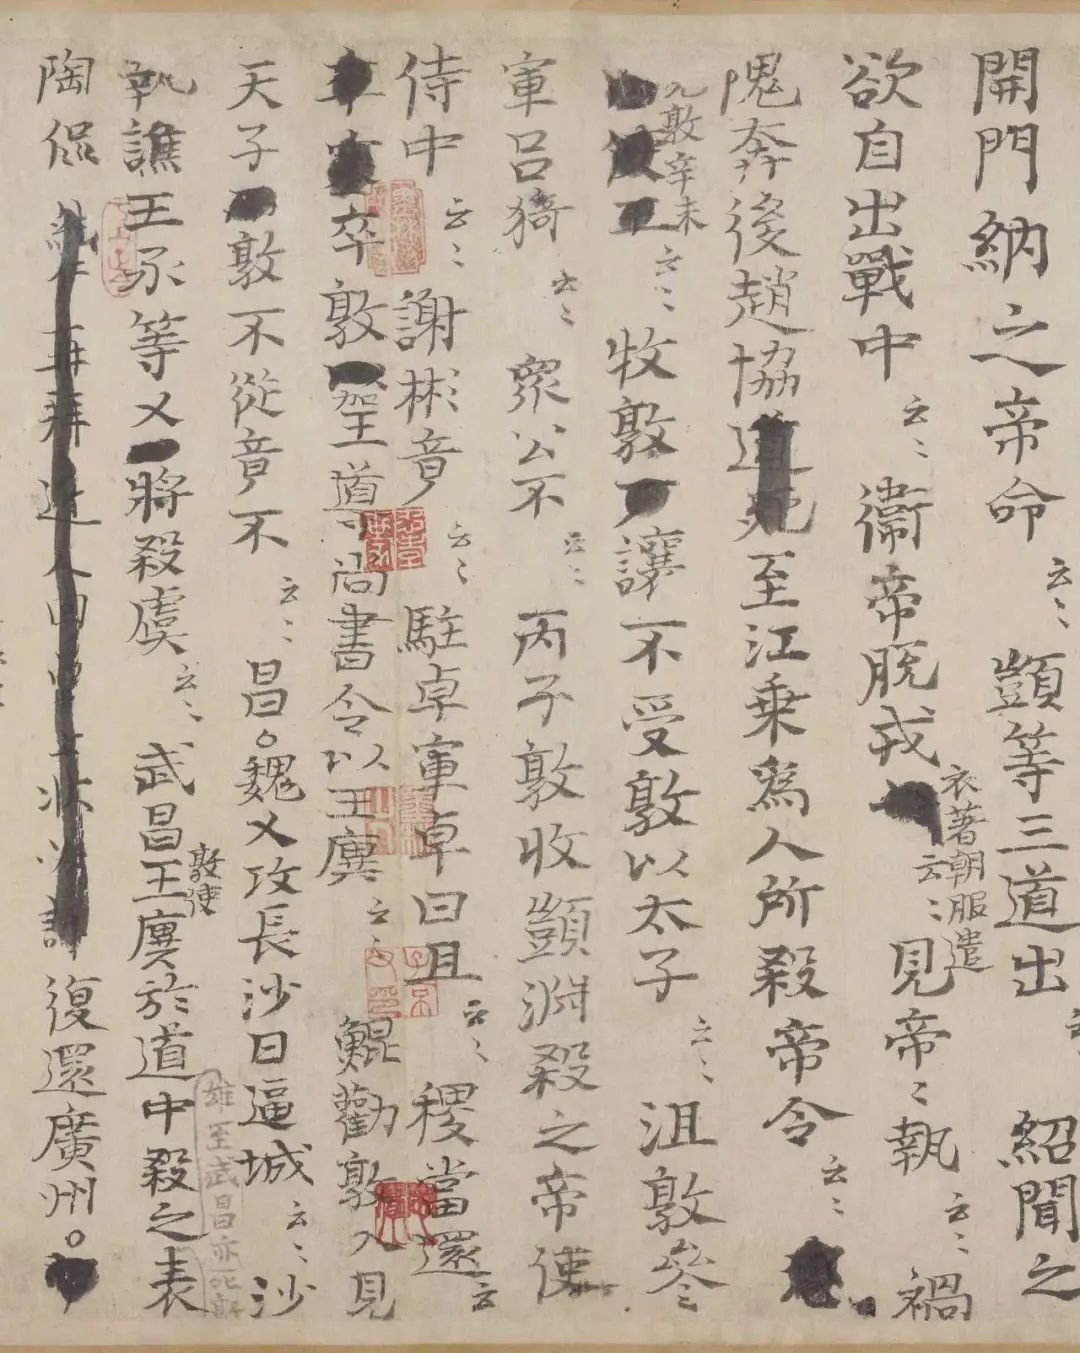 開門納之帝命云〻顗等三道出 紹聞之
欲自出戰中云〻衛帝脫戎衣著朝服遣云〻見帝〻執云〻禍
隗奔後趙協道死至江乗為人所殺帝令云〻
敦辛未云〻牧敦讓不受敦以太子云〻沮敦參
軍呂猗云〻眾公不云〻丙子敦收顗淵殺之帝使
侍中云〻謝彬音云〻駐卓軍卓曰且云〻稷當還云
卒敦王導尚書令以王廙云〻鯤勸敦入見
天子敦不從竟不云〻昌魏乂攻長沙日逼城云〻沙
執譙王承等乂將殺虞云〻武昌敦使王廙於道中殺之表
雄至武昌亦死
陶侃 復還廣州